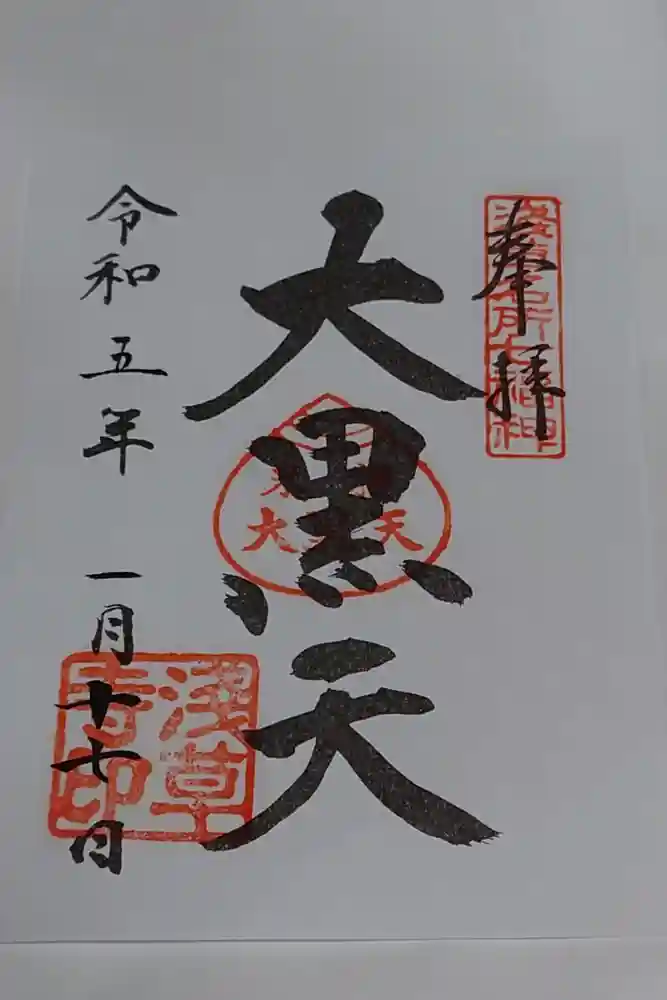 奉拝
浅草名所七福神
大黒天
大 天
令和五年 一月十七日
浅草
寺印